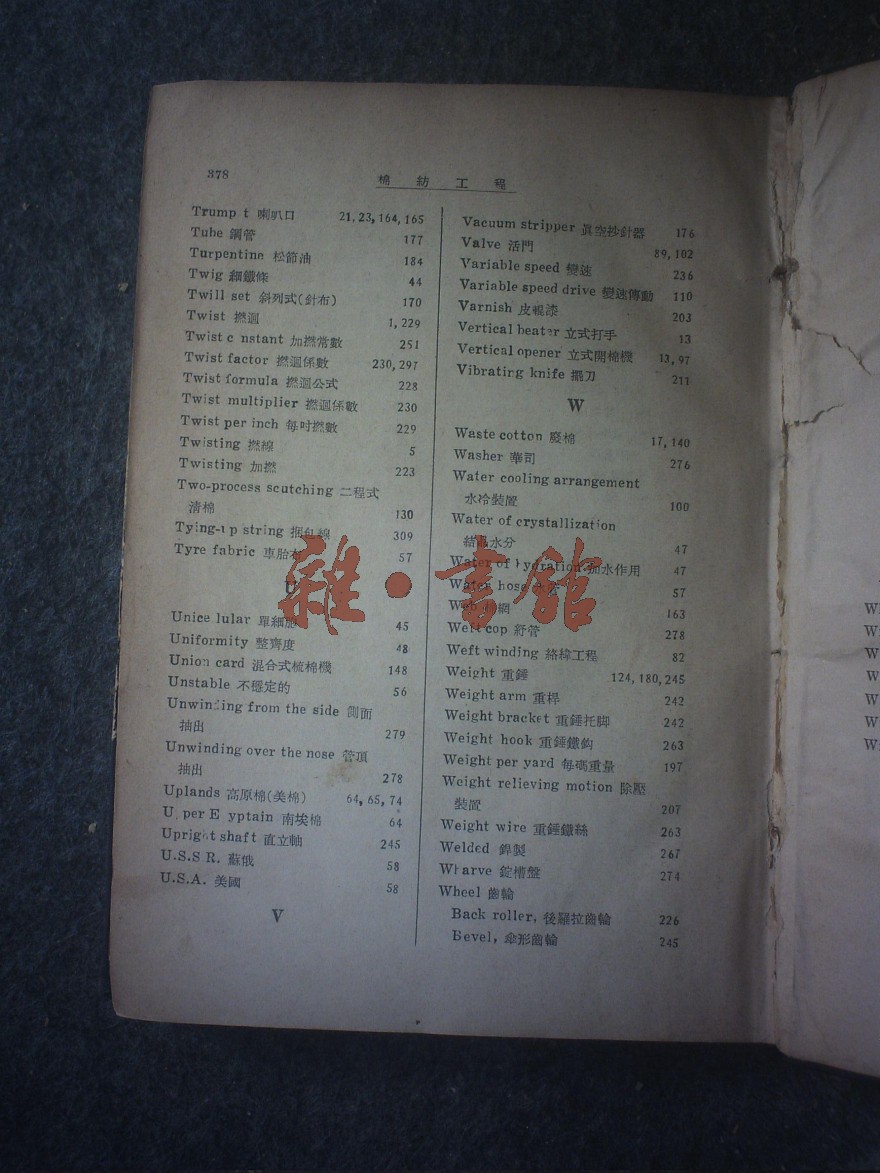 378
棉紡工程
Trump t 喇叭口 21,23,164,165
Tube 鋼管 177
Turpentine 松節油 184
Twig 細鐵條 44
Twill set 斜列式(針布) 170
Twist 撚迴 1,229
Twist c nstant 加撚常數 251
Twist factor 撚迴係數 230,297
Twist formula 撚迴公式 228
Twist multiplier 撚迴係數 230
Twist per inch 每吋撚數 229
Twisting 撚線 5
Twisting 加撚 223
Two-process scutching 二程式
清棉 130
Tying-up string 捆包線 309
Tyre fabric 車胎布 57
U
Unice lular 單細胞 45
Uniformity 整齊度 48
Union card 混合式梳棉機 148
Unstable 不穩定的 56
Unwinding from the side 側面
抽出 279
Unwinding over the nose 管頂
抽出 278
Uplands 高原棉(美棉) 64,65,74
U per E yptain 南埃棉 64
Upright shaft 直立軸 245
U.S.S R. 蘇俄 58
U.S.A. 美國 58
V
Vacuum stripper 眞空抄針器 176
Valve 活門 89,102
Variable speed 變速 236
Variable speed drive 變速傳動 110
Varnish 皮輥漆 203
Vertical beater 立式打手 13
Vertical opener 立式開棉機 13,97
Vibrating knife 擺刀 211
W
Waste cotton 廢棉 17,140
Washer 華司 276
Water cooling arrangement
水冷裝置 100
Water of crystallization
結晶水分 47
Water of hydration 加水作用 47
Water hose 57
Web 網 163
Weft cop 紆管 278
Weft winding 絡緯工程 82
Weight 重錘 124,180,245
Weight arm 重桿 242
Weight bracket 重錘托脚 242
Weight hook 重錘鐵鈎 263
Weight per yard 每碼重量 197
Weight relieving motion 除壓
裝置 207
Weight wire 重錘鐵絲 263
Welded 銲製 267
Wharve 錠槽盤 274
Wheel 齒輪
Back roller, 後羅拉齒輪 226
Bevel, 傘形齒輪 245
雜·書館